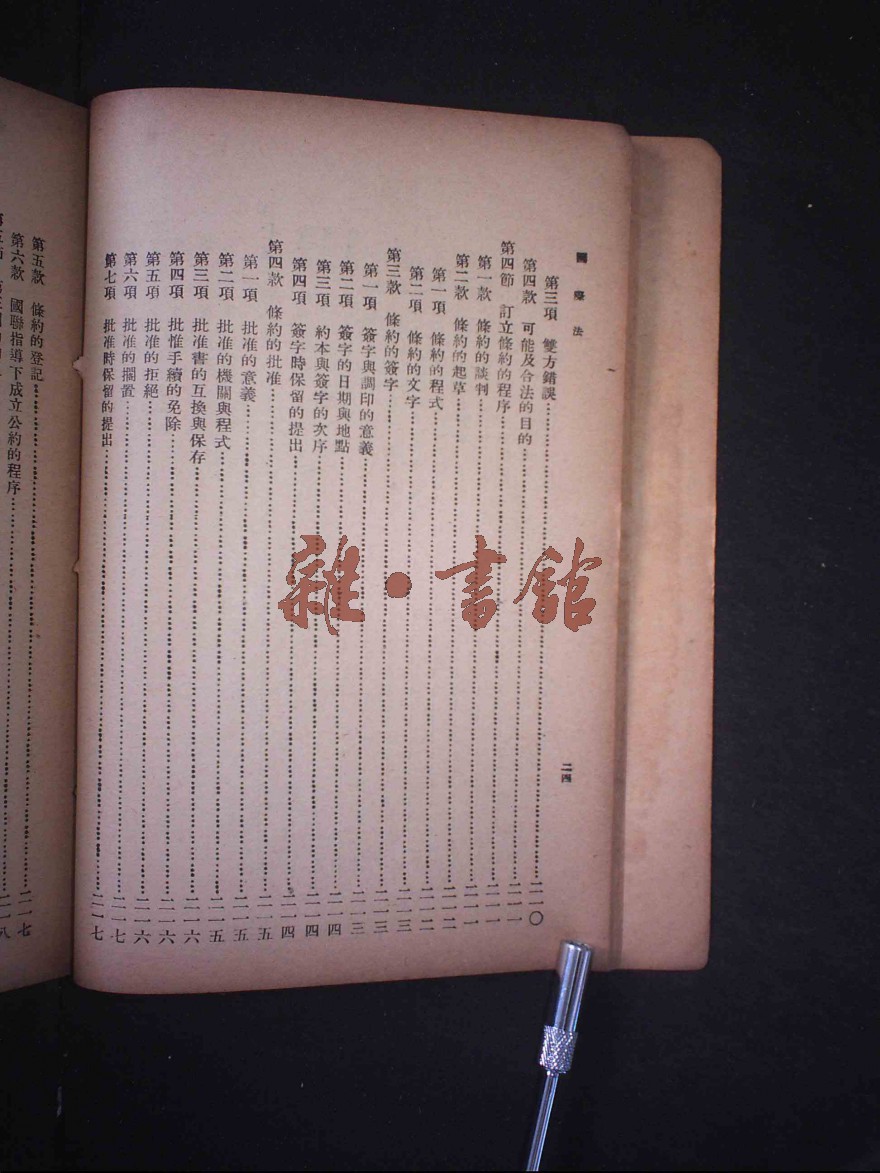 國際法
二四
第三項 雙方錯誤……二一〇
第四款 可能及合法的目的……二一一
第四節 訂立條約的程序……二一一
第一款 條約的談判……二一一
第二款 條約的起草……二一二
第一項 條約的程式……二一二
第二項 條約的文字……二一三
第三款 條約的簽字……二一三
第一項 簽字與調印的意義……二一三
第二項 簽字的日期與地點……二一四
第三項 約本與簽字的次序……二一四
第四項 簽字時保留的提出……二一四
第四款 條約的批准……二一五
第一項 批准的意義……二一五
第二項 批准的機關與程式……二一五
第三項 批准書的互換與保存……二一六
第四項 批惟手續的免除……二一六
第五項 批准的拒絕……二一六
第六項 批准的擱置……二一七
第七項 批准時保留的提出……二一七
第五款 條約的登記……二一七
第六款 國聯指導下成立公約的程序……二一八
雜·書館